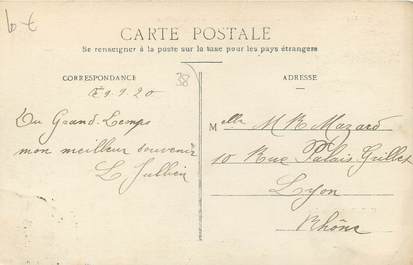 6 €
CARTE POSTALE
Se renseigner à la poste sur la taxe pour les pays étrangers
CORRESPONDANCE
38
ADRESSE
9.20
Du Grand-Lemps
mon meilleur souvenir
L. Jullien
Melle M R Mazard
10 Rue Palais Grillet
Lyon
Rhône